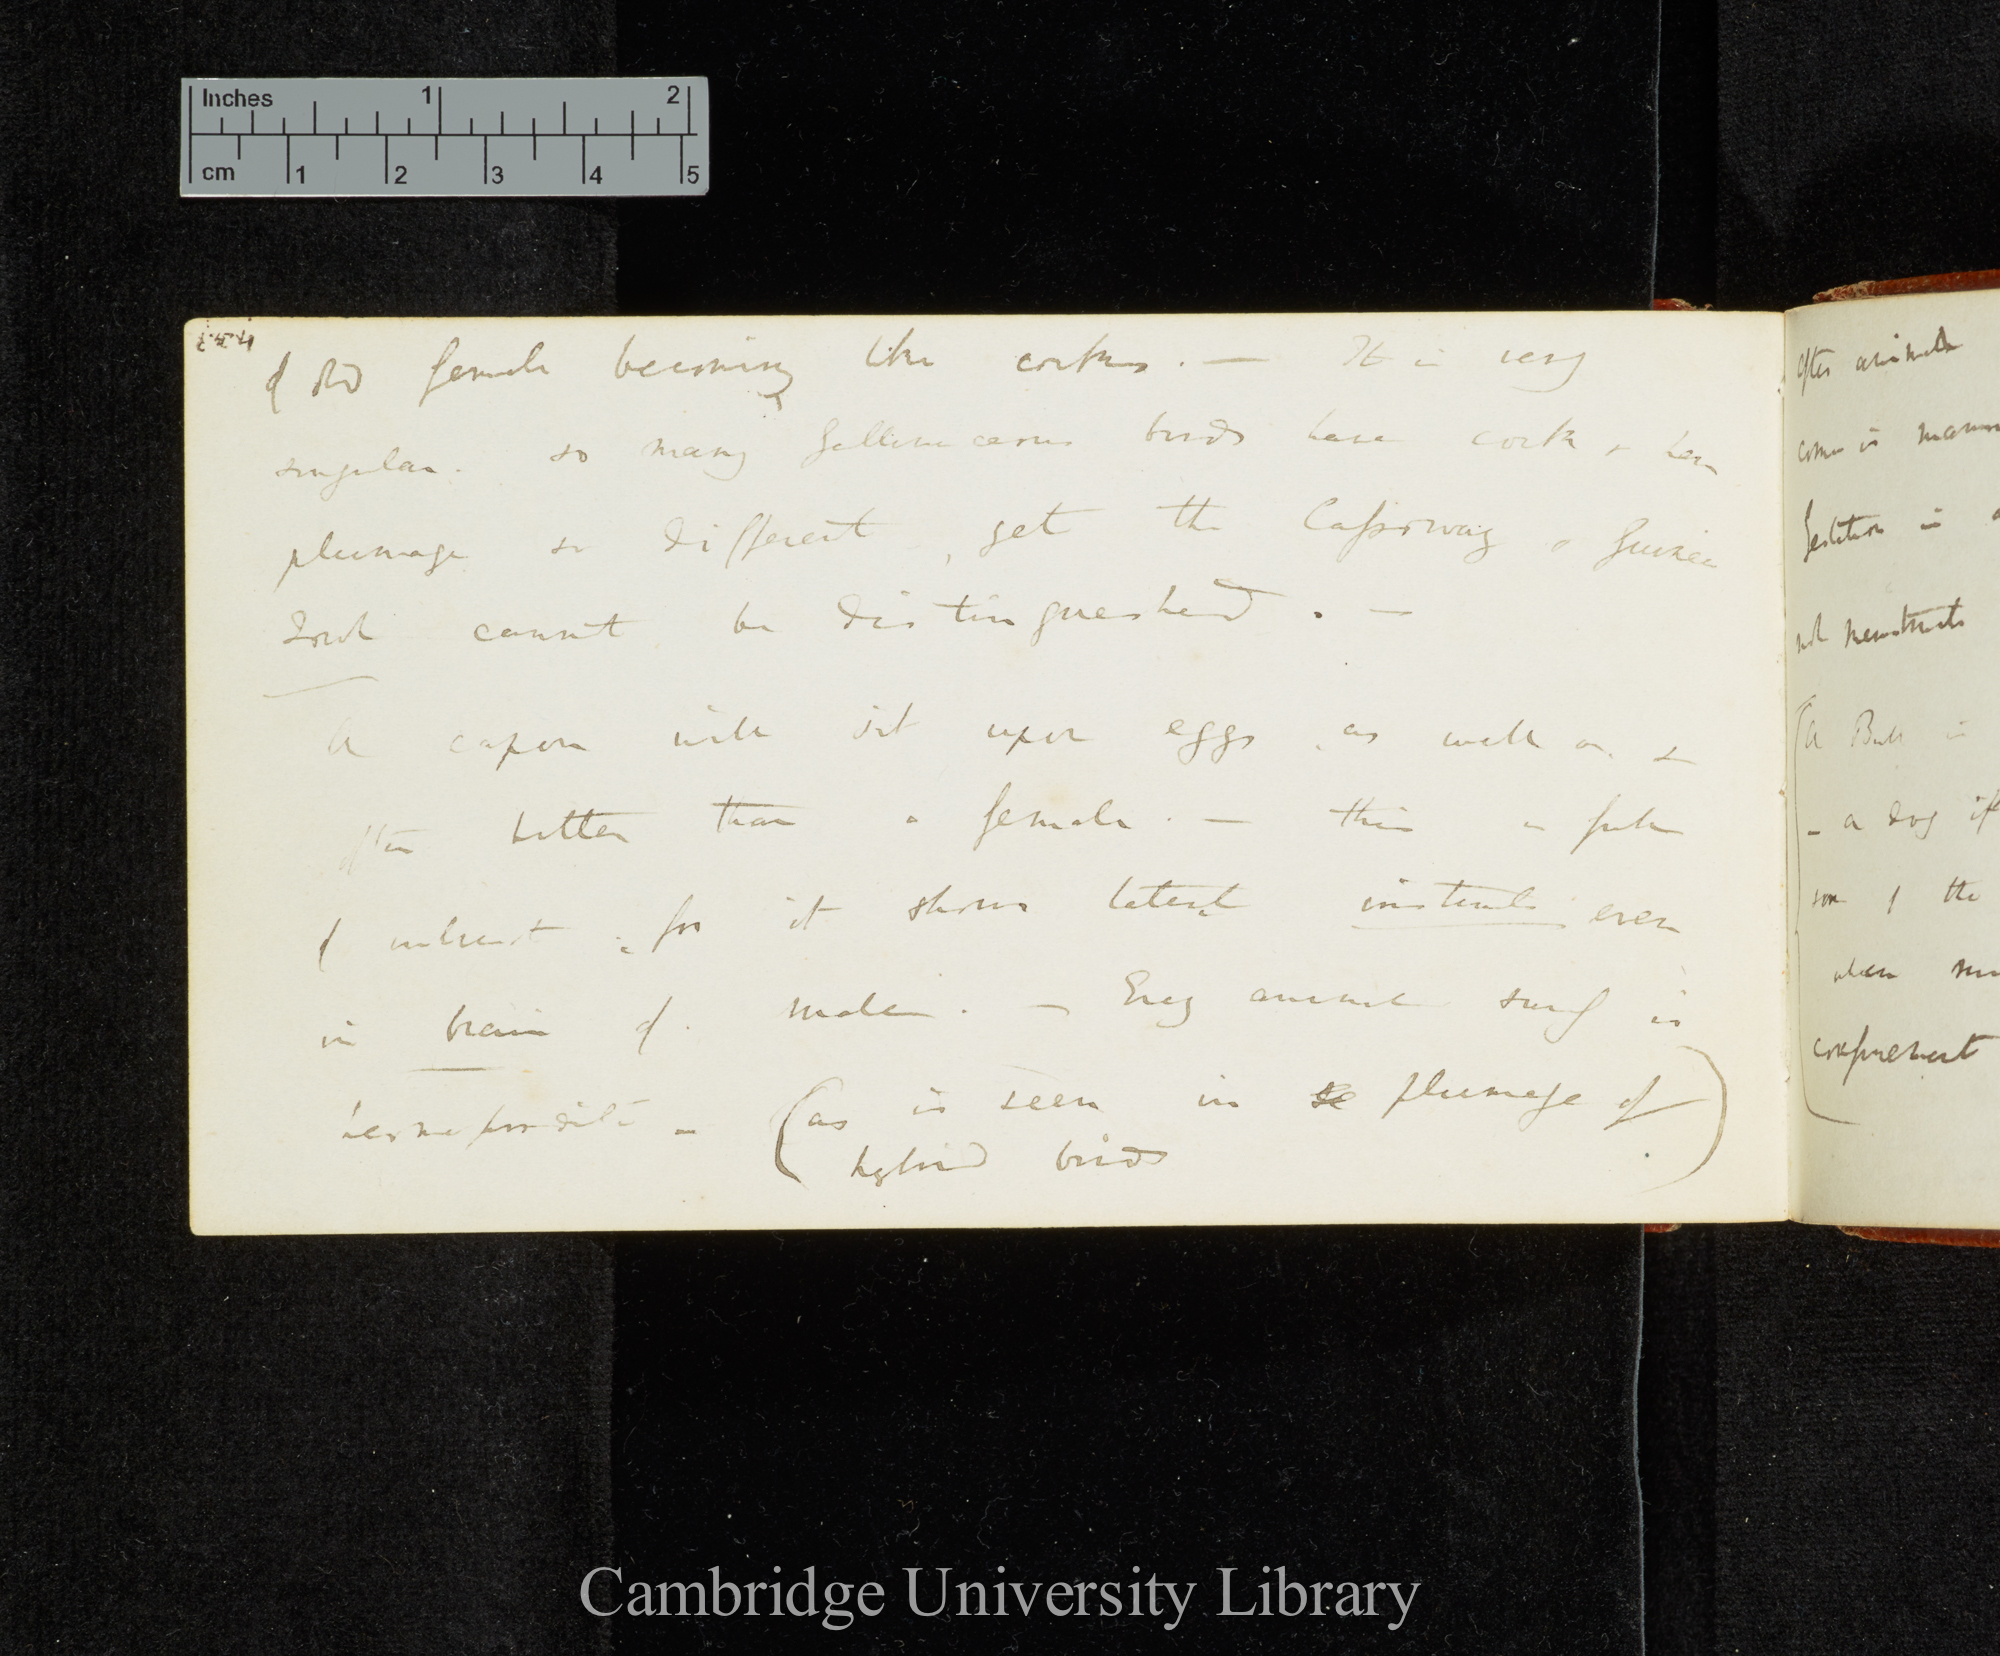 Inches 1 2
cm 1 2 3 4 5
of old female becoming like cocks. — It is very
singular. so many gallinaceous birds have cock & hen
plumage so different, yet the Cassowary & Guinea
Fowl cannot be distinguished. —
A capon will sit upon eggs, as well as, &
often better than a female. — this is full
of interest, for it shows latent instincts even
in brain of male. — Every animal surely is
hermaphrodite — (as is seen in se plumage of
hybrid birds)
after animals
come in
gestation in
not menstruate
(A Bull in
— a dog if
son of the
when
confinement
Cambridge University Library